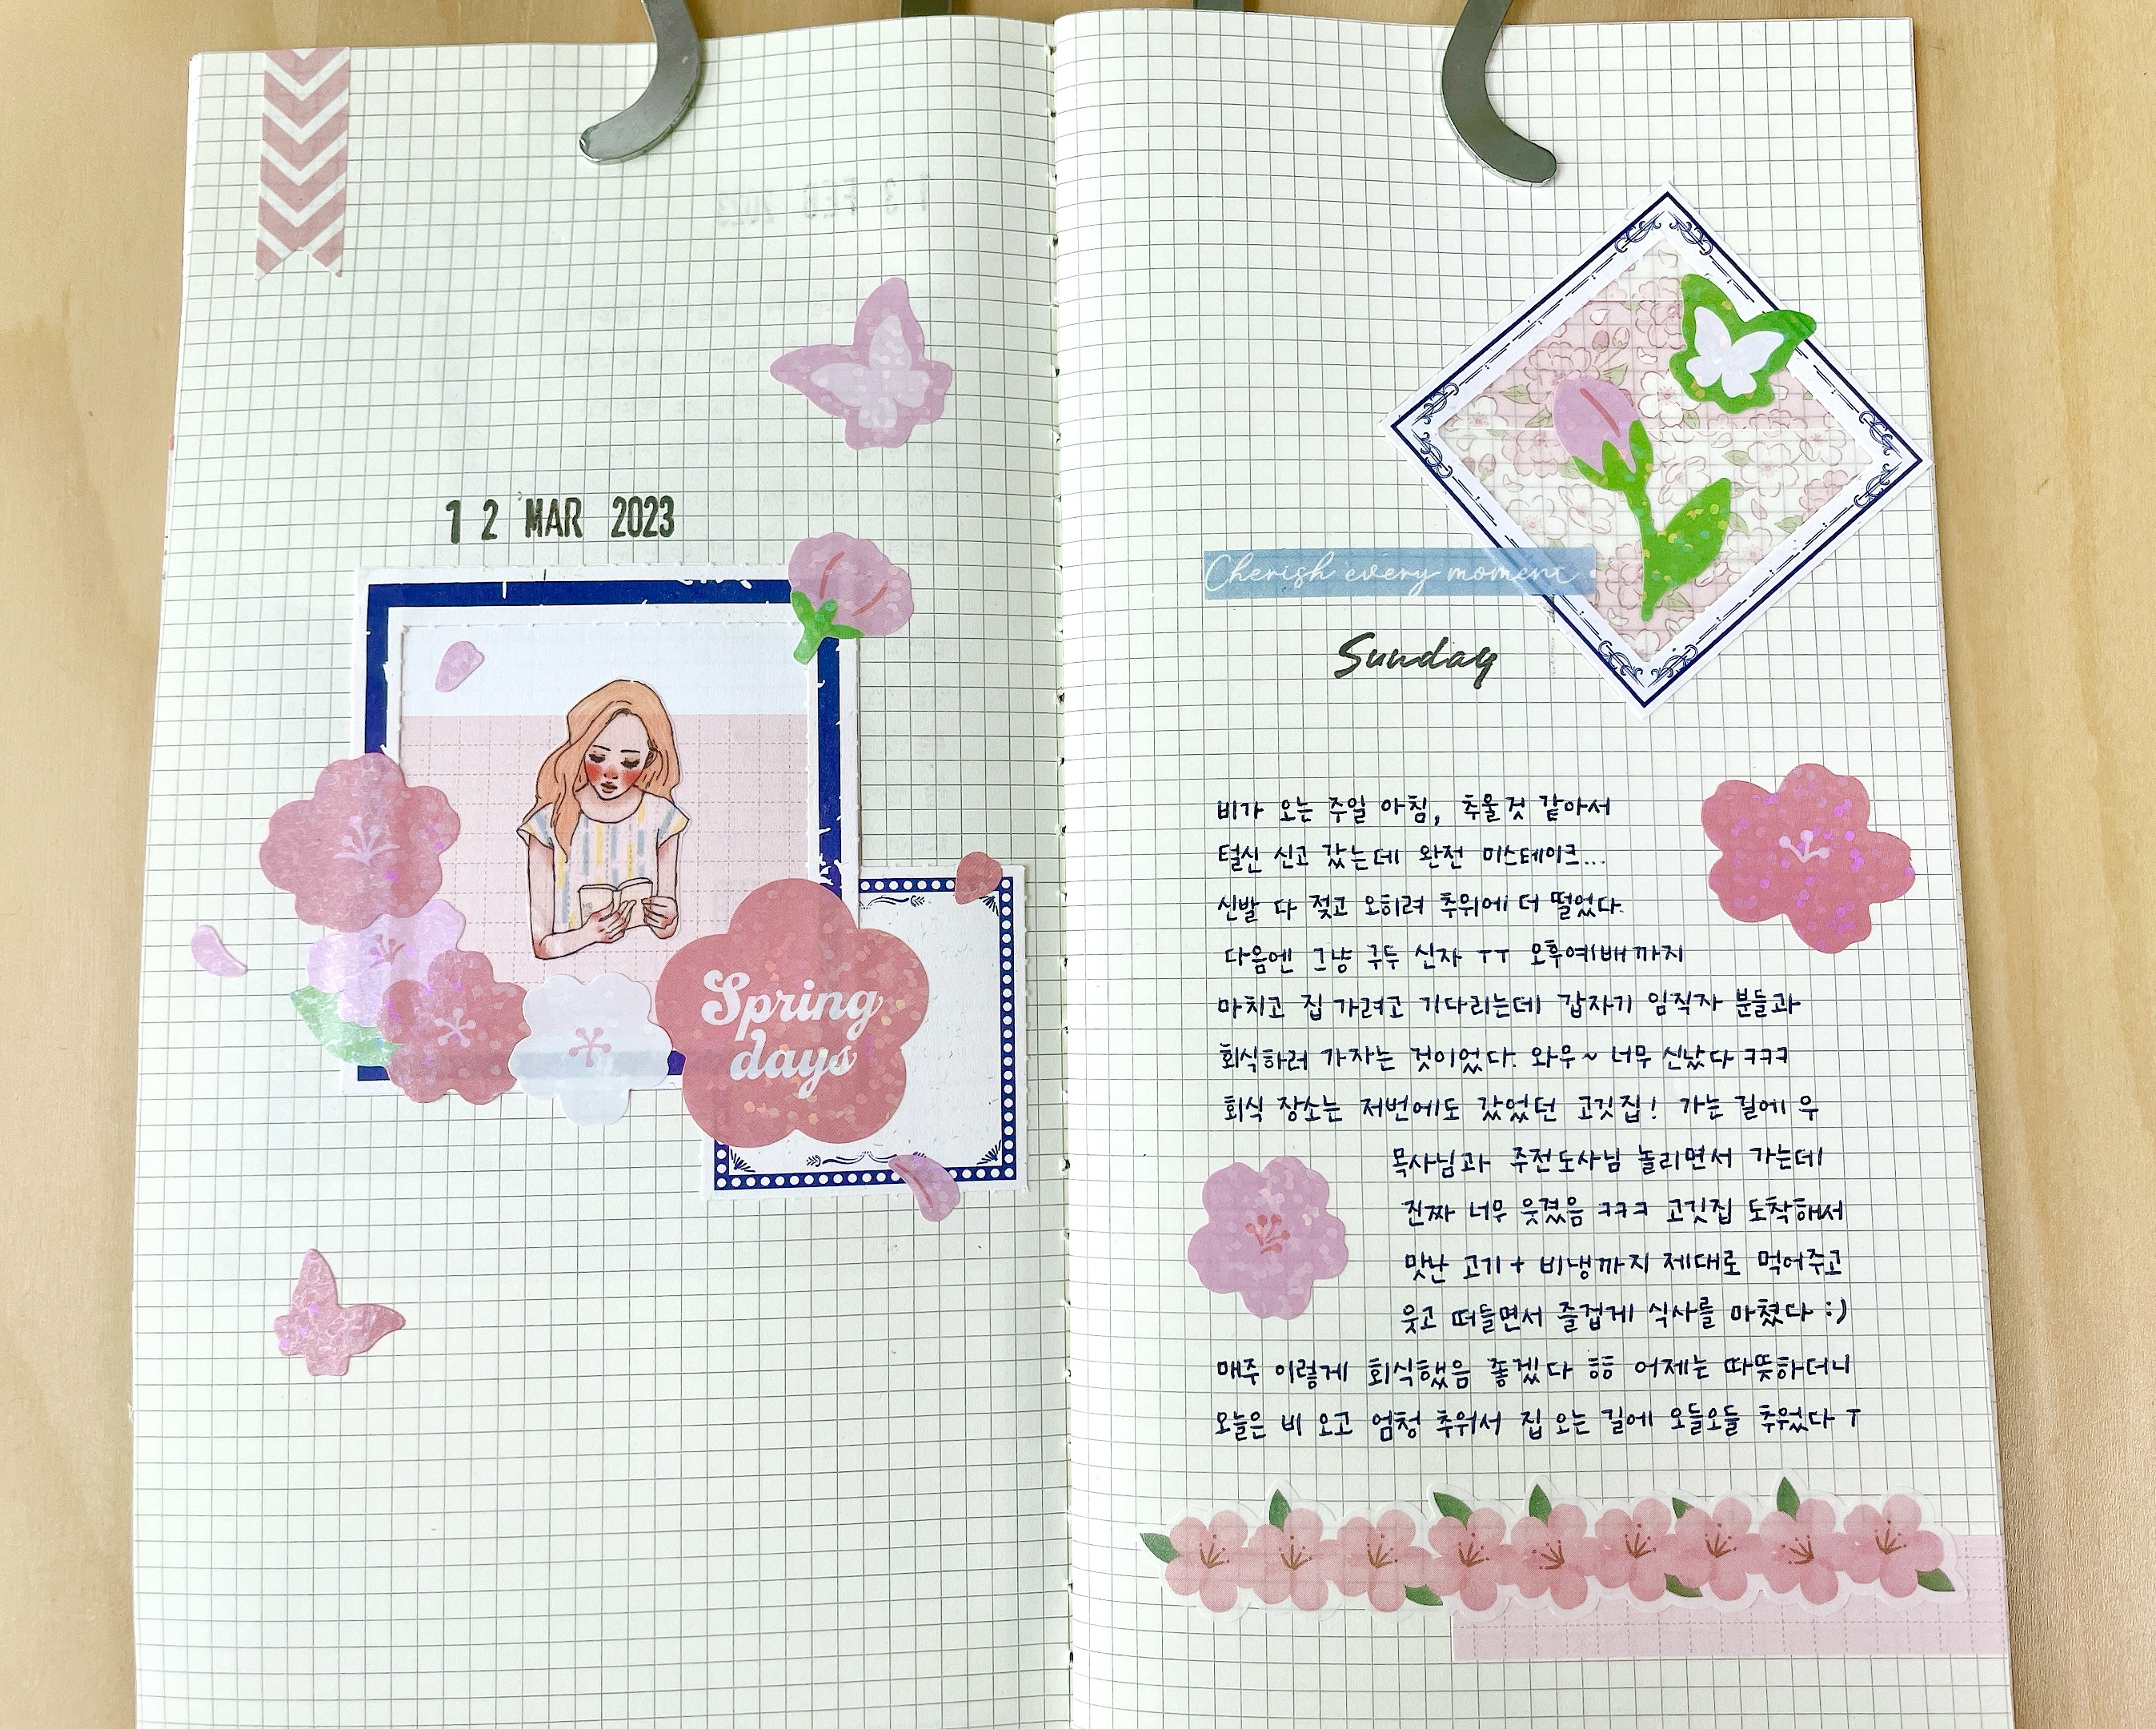 12 MAR 2023
Spring
days
Cherish every moment
Sunday
비가 오는 주일 아침, 추울것 같아서
털신 신고 갔는데 완전 미스테이크...
신발 다 젖고 오히려 추위에 더 떨었다.
다음엔 그냥 구두 신자 ㅜㅜ 오후예배까지
마치고 집 가려고 기다리는데 갑자기 임직자 분들과
회식하러 가자는 것이었다. 와우~ 너무 신났다 ㅋㅋㅋ
회식 장소는 저번에도 갔었던 고깃집! 가는 길에 우
목사님과 주전도사님 놀리면서 가는데
진짜 너무 웃겼음 ㅋㅋㅋ 고깃집 도착해서
맛난 고기+ 비냉까지 제대로 먹어주고
웃고 떠들면서 즐겁게 식사를 마쳤다 :)
매주 이렇게 회식했음 좋겠다 ㅎㅎ 어제는 따뜻하더니
오늘은 비 오고 엄청 추워서 집 오는 길에 오들오들 추웠다 ㅜ